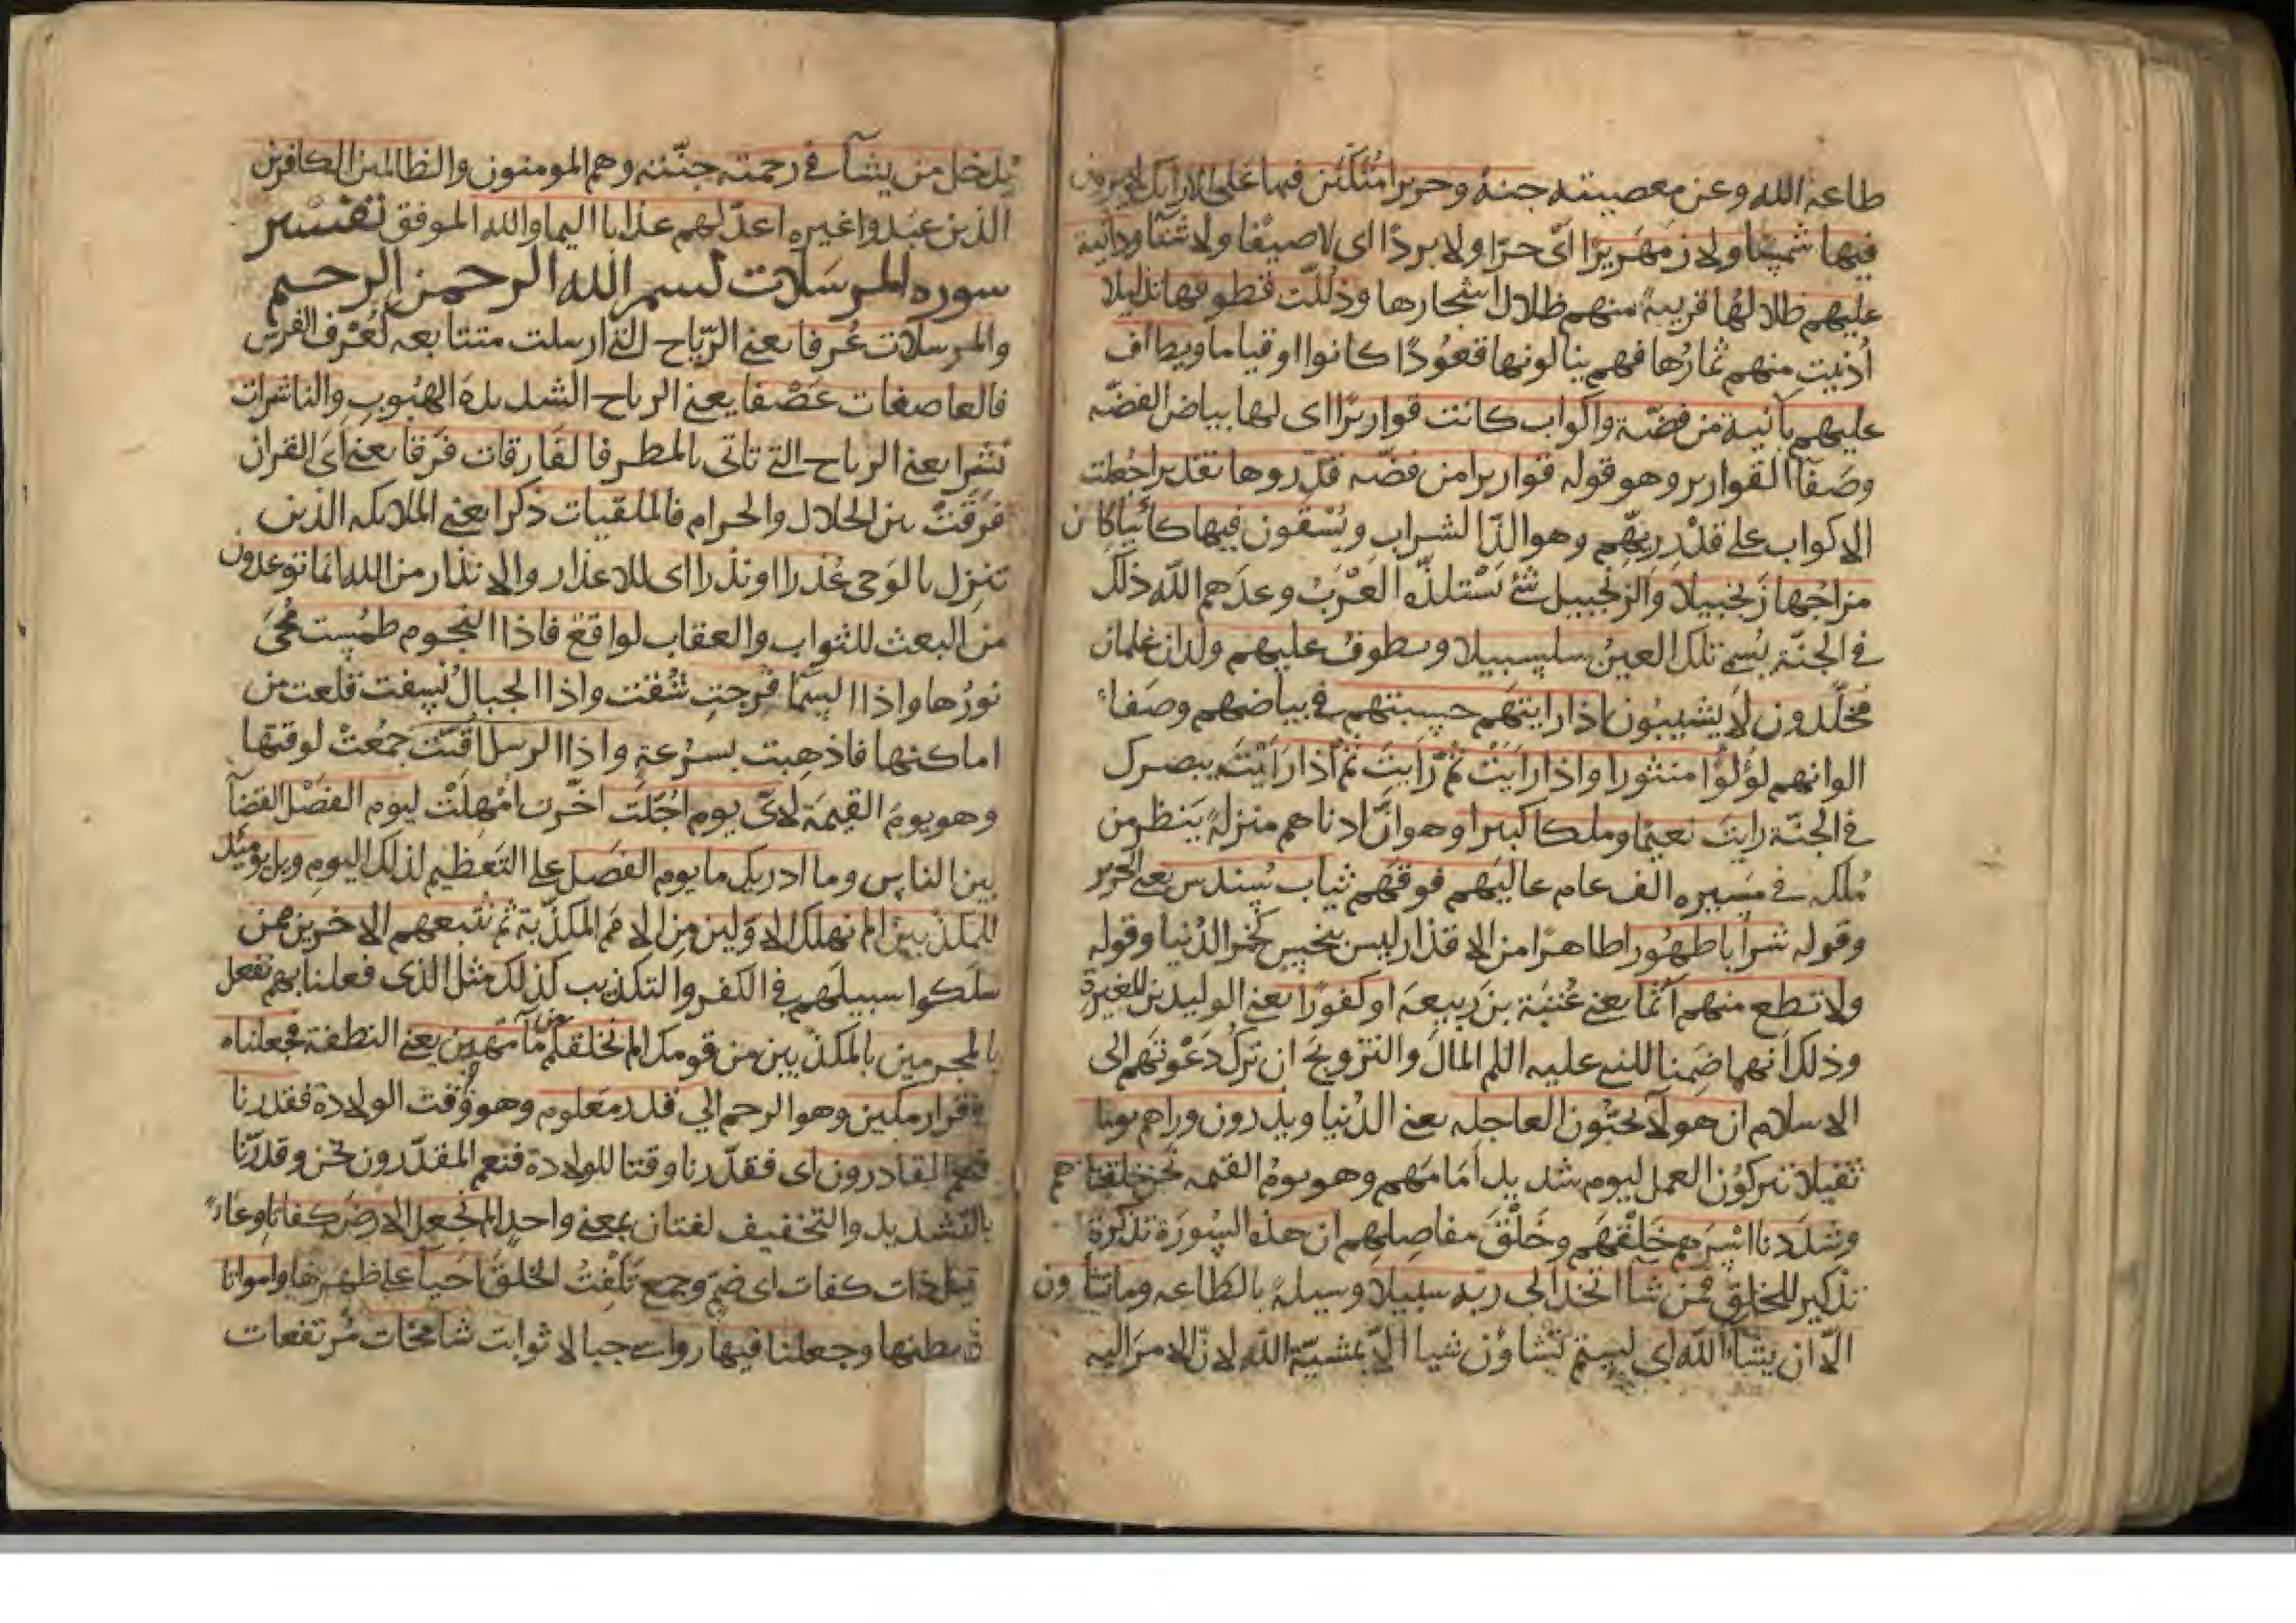 طاعة الله وعن معصيته جنة وحريرا متكئين فيها على الارايك لا يرون
فيها شمسا ولا زمهريرا اى حرا ولا بردا اى لا صيفا ولا شتآ ودانية
عليهم ظلالها قريبة منهم ظلال اشجارها وذللت قطوفها تذليلا
أدنيت منهم ثمارها فهم ينالونها قعودا كانوا او قياما ويطاف
عليهم بآنية من فضة واكواب كانت قواريرا اى لها بياض الفضة
وصفآ القوارير وهو قوله قواريرا من فضه قدروها تقديرا جعلت
الاكواب على قدر ريهم وهو الذ الشراب ويسقون فيها كأسا كان
مزاجها زنجبيلا والزنجبيل شئ تستلذه العرب وعدهم الله ذلك
فى الجنة يسمى تلك العين سلسبيلا ويطوف عليهم ولدان غلمان
مخلدون لا يشيبون اذا رايتهم حسبتهم فى بياضهم وصفاء
الوانهم لؤلؤا منثورا واذا رايت ثم رايت ثم اذا رايت ببصرك
فى الجنة رايت نعيما وملكا كبيرا وهو ان ادناهم منزلة ينظر من
ملكه فى مسيره الف عام عاليهم فوقهم ثياب سندس يعنى الحرير
وقوله شرابا طهورا طاهرا من الاقذار ليس بنجس كخمر الدنيا وقوله
ولا تطع منهم آثما يعنى عتبة بن ربيعه او كفورا يعنى الوليد بن المغيرة
وذلك انهما ضمنا للنبى عليه السلم المال والتزويج ان ترك دعوتهم الى
الاسلام ان هولآ يحبون العاجله يعنى الدنيا ويذرون وراهم يوما
ثقيلا يتركون العمل ليوم شديد امامهم وهو يوم القيمه نحن خلقناهم
وشددنا اسرهم خلقهم وخلق مفاصلهم ان هذه السورة تذكرة
تذكير للخلق فمن شا اتخذ الى ربه سبيلا وسيلة بالطاعه وما تشاون
الا ان يشآ الله اى لستم تشاؤن شيا الا بمشية الله لان الامر اليه
يدخل من يشآ فى رحمته جنته وهم المومنون والظالمين الكافرين
الذين عبدوا غيره اعد لهم عذابا اليما والله الموفق تفسير
سوره المرسلات بسم الله الرحمن الرحيم
والمرسلات عرفا يعنى الرياح التى ارسلت متتابعه كعرف الفرس
فالعاصفات عصفا يعنى الرياح الشديدة الهبوب والناشرات
نشرا يعنى الرياح التى تاتى بالمطر فالفارقات فرقا يعنى آى القران
فرقت بين الحلال والحرام فالملقيات ذكرا يعنى الملايكه الذين
تنزل بالوحى عذرا او نذرا اى للاعذار والانذار من الله انما توعدون
من البعث للثواب والعقاب لواقع فاذا النجوم طمست محى
نورها واذا السمآ فرجت شقت واذا الجبال نسفت قلعت من
اماكنها فاذهبت بسرعة واذا الرسل اقتت جمعت لوقتها
وهو يوم القيمة لاى يوم اجلت اخرت امهلت ليوم الفصل القضآ
بين الناس وما ادريك ما يوم الفصل على التعظيم لذلك اليوم ويل يوميذ
للمكذبين الم نهلك الاولين من الامم المكذبة ثم نتبعهم الاخرين ممن
سلكوا سبيلهم فى الكفر والتكذيب كذلك مثل الذى فعلنا بهم نفعل
بالمجرمين بالمكذبين من قومك الم نخلقكم من مآ مهين يعنى النطفة فجعلناه
فى قرار مكين وهو الرحم الى قدر معلوم وهو وقت الولادة فقدرنا
فنعم القادرون اى فقدرنا وقتا للولادة فنعم المقدرون نحن وقدرنا
بالتشديد والتخفيف لغتان بمعنى واحد الم نجعل الارض كفاتا وعاء
قيل ذات كفات اى ضم وجمع تكفت الخلق احيآ على ظهرها وامواتا
فى بطنها وجعلنا فيها رواسى جبالا ثوابت شامخات مرتفعات